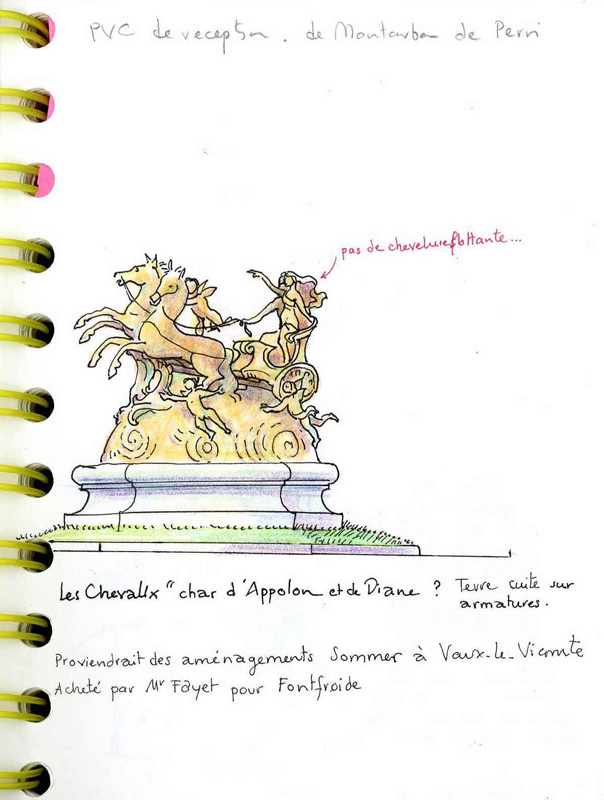 PVC de reception. de Montauban de Perri
pas de chevelure flottante...
Les Chevaux " char d'Appolon et de Diane ? Terre cuite sur
armatures.
Proviendrait des aménagements Sommer à Vaux-le-Vicomte
Acheté par Mr Fayet pour Fontfroide